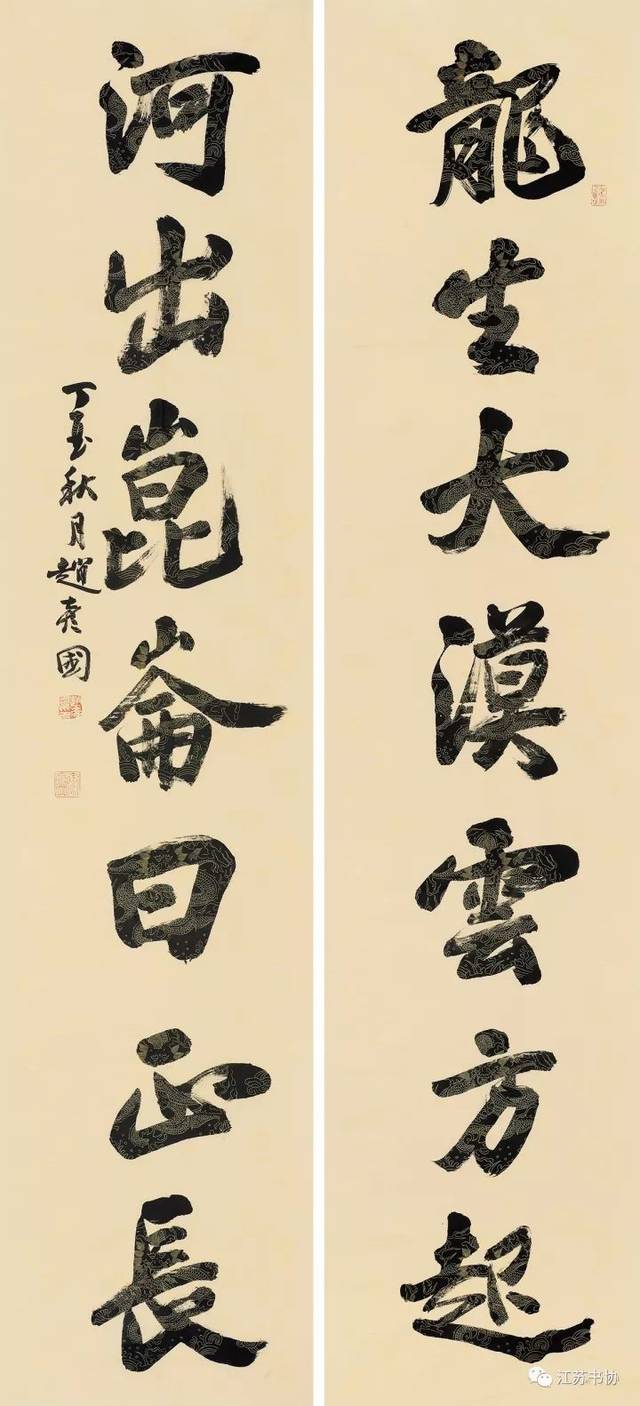 龍生大漠雲方起
河出崑崙日正長
丁酉秋月趙彥國
江苏书协